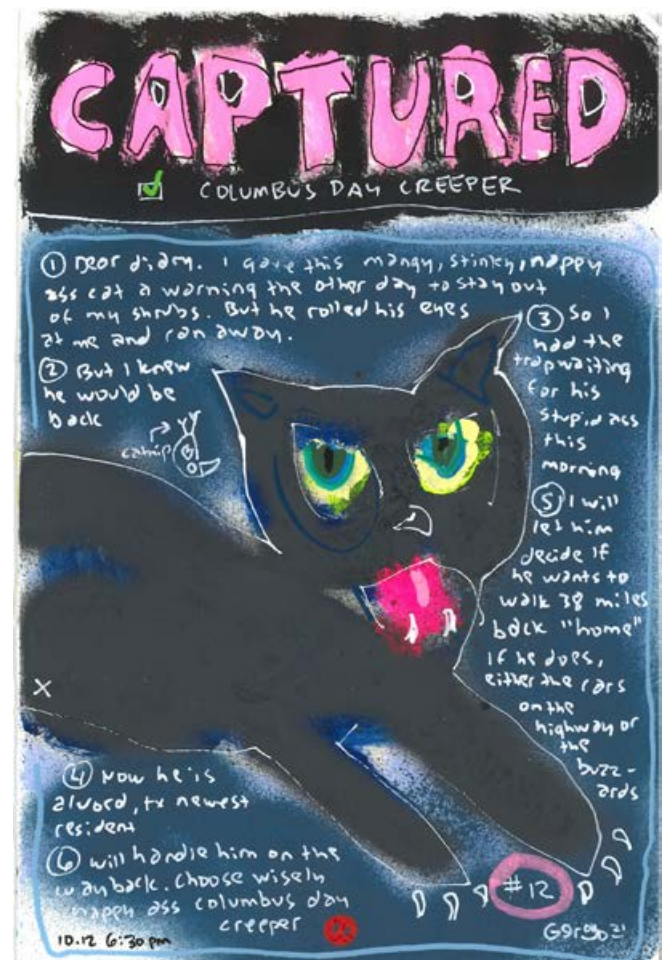 CAPTURED
COLUMBUS DAY CREEPER
① Dear diary. I gave this mangy, stinky, nappy
ass cat a warning the other day to stay out
of my shrubs. But he rolled his eyes
at me and ran away.
② But I knew
he would be
back
catnip
③ So I
had the
trap waiting
for his
stupid ass
this
morning
⑤ I will
let him
decide if
he wants to
walk 38 miles
back "home"
If he does,
either the cars
on the
highway or
the
buzz-
ards
④ Now he is
alvord, tx newest
resident
⑥ will handle him on the
way back. Choose wisely
nappy ass columbus day
creeper
#12
10.12 6:30 pm